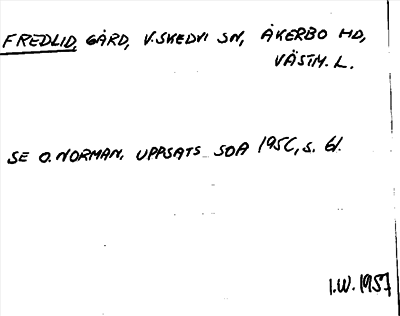 FREDLID, GÅRD, V. SKEDVI SN, ÅKERBO HD,
VÄSTM. L.
SE O. NORMAN, UPPSATS SOA 1956, S. 61.
I.W. 1957